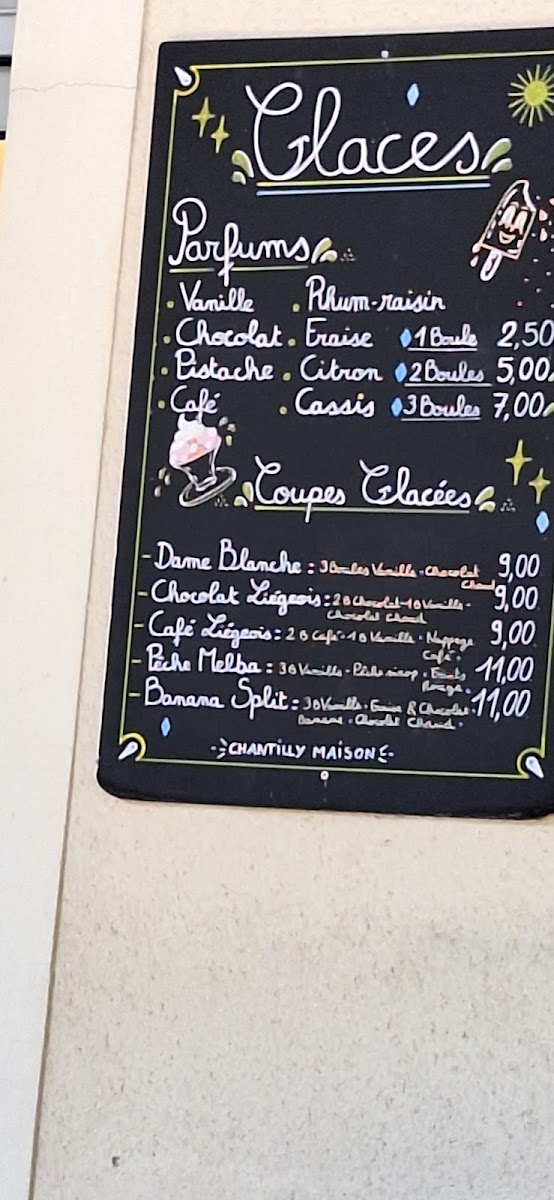 Glaces
Parfums
Vanille . Rhum-raisin
Chocolat . Fraise 1 Boule 2,50
Pistache . Citron 2 Boules 5,00
Café . Cassis 3 Boules 7,00
Coupes Glacées
- Dame Blanche : 3 Boules Vanille - Chocolat Chaud 9,00
- Chocolat Liégeois : 2 B Chocolat - 1 B Vanille - Chocolat Chaud 9,00
- Café Liégeois : 2 B Café - 1 B Vanille - Nappage Café 9,00
- Pêche Melba : 3 B Vanille - Pêche sirop - Fruits Rouge 11,00
- Banana Split : 3 B Vanille - Fraise & Chocolat - Banane - Chocolat Chaud 11,00
CHANTILLY MAISON